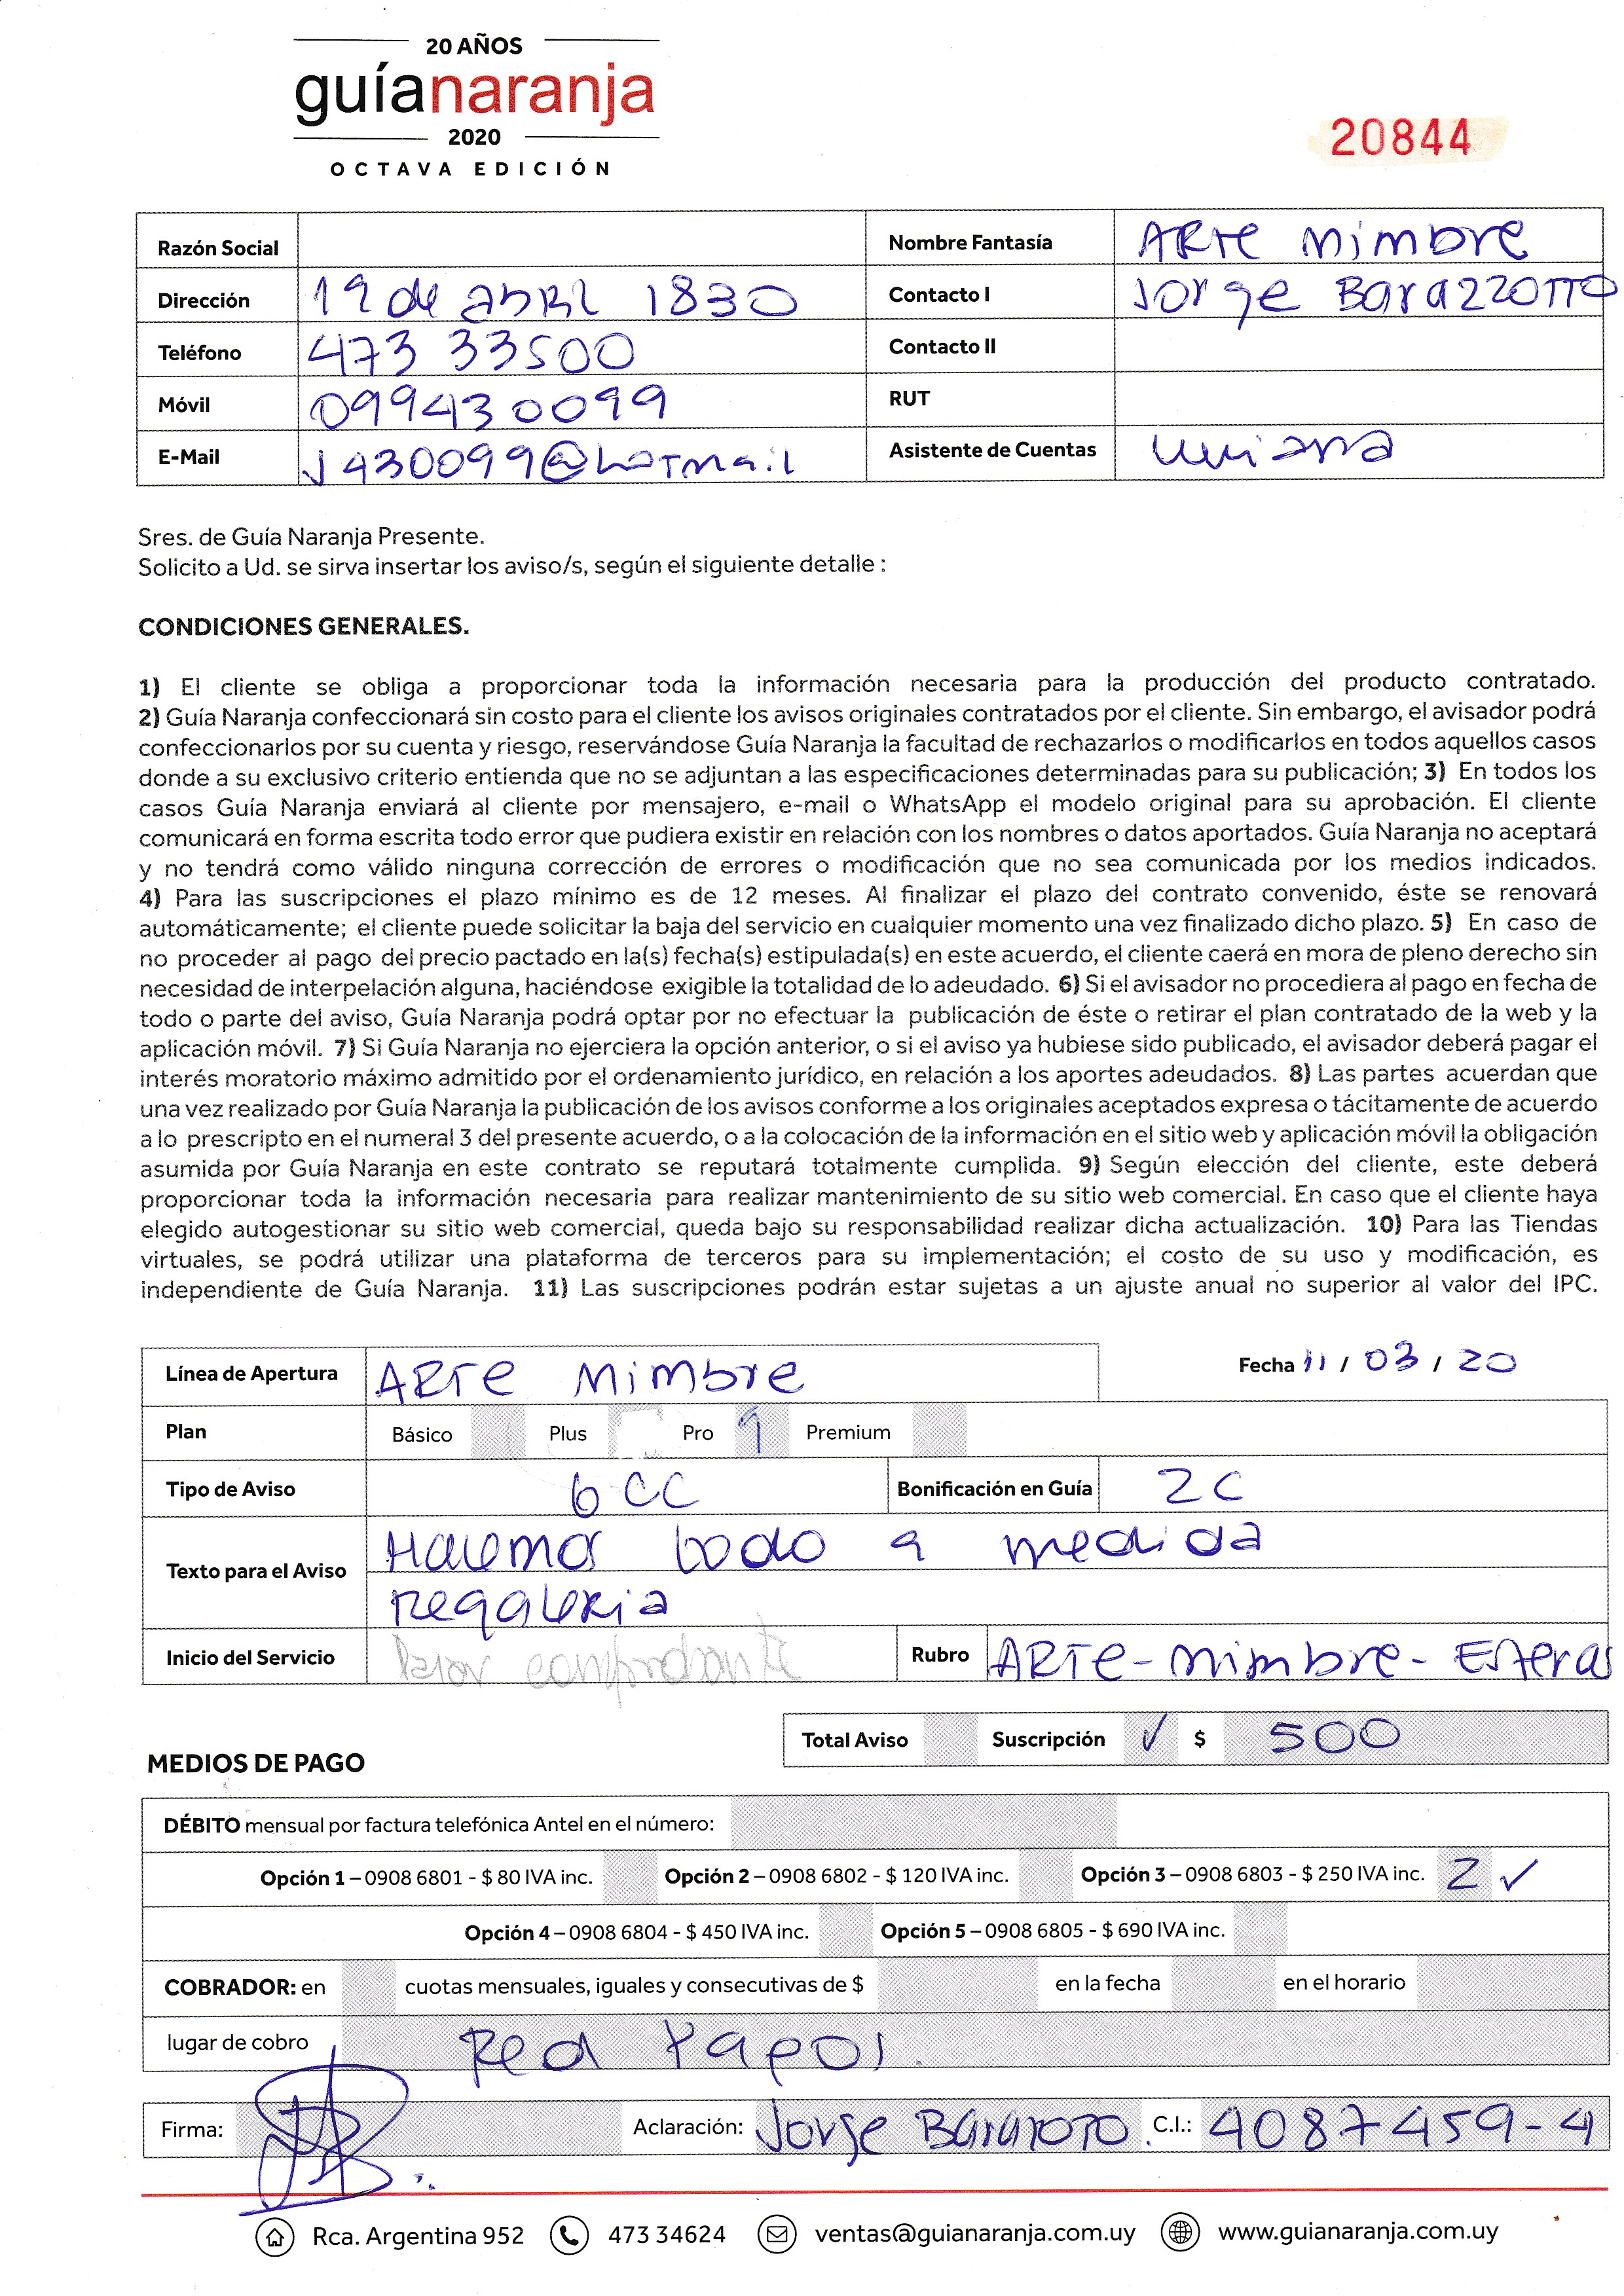 20 AÑOS
guíanaranja
2020
OCTAVA EDICIÓN
20844
Razón Social
Nombre Fantasía ARTE Mimbre
Dirección 19 de abril 1830
Contacto I Jorge Barazzotto
Teléfono 473 33500
Contacto II
Móvil 099430099
RUT
E-Mail J430099@hotmail
Asistente de Cuentas
Sres. de Guía Naranja Presente.
Solicito a Ud. se sirva insertar los aviso/s, según el siguiente detalle :
CONDICIONES GENERALES.
1) El cliente se obliga a proporcionar toda la información necesaria para la producción del producto contratado.
2) Guía Naranja confeccionará sin costo para el cliente los avisos originales contratados por el cliente. Sin embargo, el avisador podrá
confeccionarlos por su cuenta y riesgo, reservándose Guía Naranja la facultad de rechazarlos o modificarlos en todos aquellos casos
donde a su exclusivo criterio entienda que no se adjuntan a las especificaciones determinadas para su publicación; 3) En todos los
casos Guía Naranja enviará al cliente por mensajero, e-mail o WhatsApp el modelo original para su aprobación. El cliente
comunicará en forma escrita todo error que pudiera existir en relación con los nombres o datos aportados. Guía Naranja no aceptará
y no tendrá como válido ninguna corrección de errores o modificación que no sea comunicada por los medios indicados.
4) Para las suscripciones el plazo mínimo es de 12 meses. Al finalizar el plazo del contrato convenido, éste se renovará
automáticamente; el cliente puede solicitar la baja del servicio en cualquier momento una vez finalizado dicho plazo. 5) En caso de
no proceder al pago del precio pactado en la(s) fecha(s) estipulada(s) en este acuerdo, el cliente caerá en mora de pleno derecho sin
necesidad de interpelación alguna, haciéndose exigible la totalidad de lo adeudado. 6) Si el avisador no procediera al pago en fecha de
todo o parte del aviso, Guía Naranja podrá optar por no efectuar la publicación de éste o retirar el plan contratado de la web y la
aplicación móvil. 7) Si Guía Naranja no ejerciera la opción anterior, o si el aviso ya hubiese sido publicado, el avisador deberá pagar el
interés moratorio máximo admitido por el ordenamiento jurídico, en relación a los aportes adeudados. 8) Las partes acuerdan que
una vez realizado por Guía Naranja la publicación de los avisos conforme a los originales aceptados expresa o tácitamente de acuerdo
a lo prescripto en el numeral 3 del presente acuerdo, o a la colocación de la información en el sitio web y aplicación móvil la obligación
asumida por Guía Naranja en este contrato se reputará totalmente cumplida. 9) Según elección del cliente, este deberá
proporcionar toda la información necesaria para realizar mantenimiento de su sitio web comercial. En caso que el cliente haya
elegido autogestionar su sitio web comercial, queda bajo su responsabilidad realizar dicha actualización. 10) Para las Tiendas
virtuales, se podrá utilizar una plataforma de terceros para su implementación; el costo de su uso y modificación, es
independiente de Guía Naranja. 11) Las suscripciones podrán estar sujetas a un ajuste anual no superior al valor del IPC.
Línea de Apertura ARTE Mimbre
Fecha 11 / 03 / 20
Plan Básico Plus Pro 1 Premium
Tipo de Aviso 6 CC Bonificación en Guía 2C
Texto para el Aviso Hacemos todo a medida
regaleria
Inicio del Servicio comprobante Rubro ARTE-Mimbre-Esteras
Total Aviso Suscripción ✓ $ 500
MEDIOS DE PAGO
DÉBITO mensual por factura telefónica Antel en el número:
Opción 1 – 0908 6801 - $ 80 IVA inc. Opción 2 – 0908 6802 - $ 120 IVA inc. Opción 3 – 0908 6803 - $ 250 IVA inc. 2 ✓
Opción 4 – 0908 6804 - $ 450 IVA inc. Opción 5 – 0908 6805 - $ 690 IVA inc.
COBRADOR: en cuotas mensuales, iguales y consecutivas de $ en la fecha en el horario
lugar de cobro Red Pagos.
Firma: Aclaración: Jorge Barazoto. C.I.: 4087459-4
Rca. Argentina 952 473 34624 ventas@guianaranja.com.uy www.guianaranja.com.uy